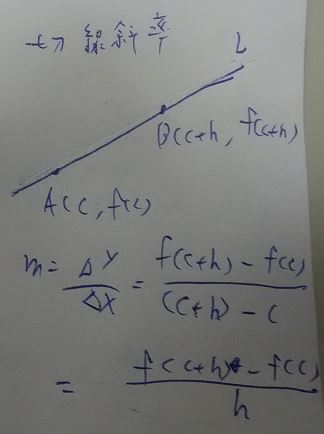 切線斜率
L
Q(c+h, f(c+h)
A(c, f(c)
m = Δy/Δx = f(c+h) - f(c)/(c+h) - c
= f(c+h) - f(c)/h